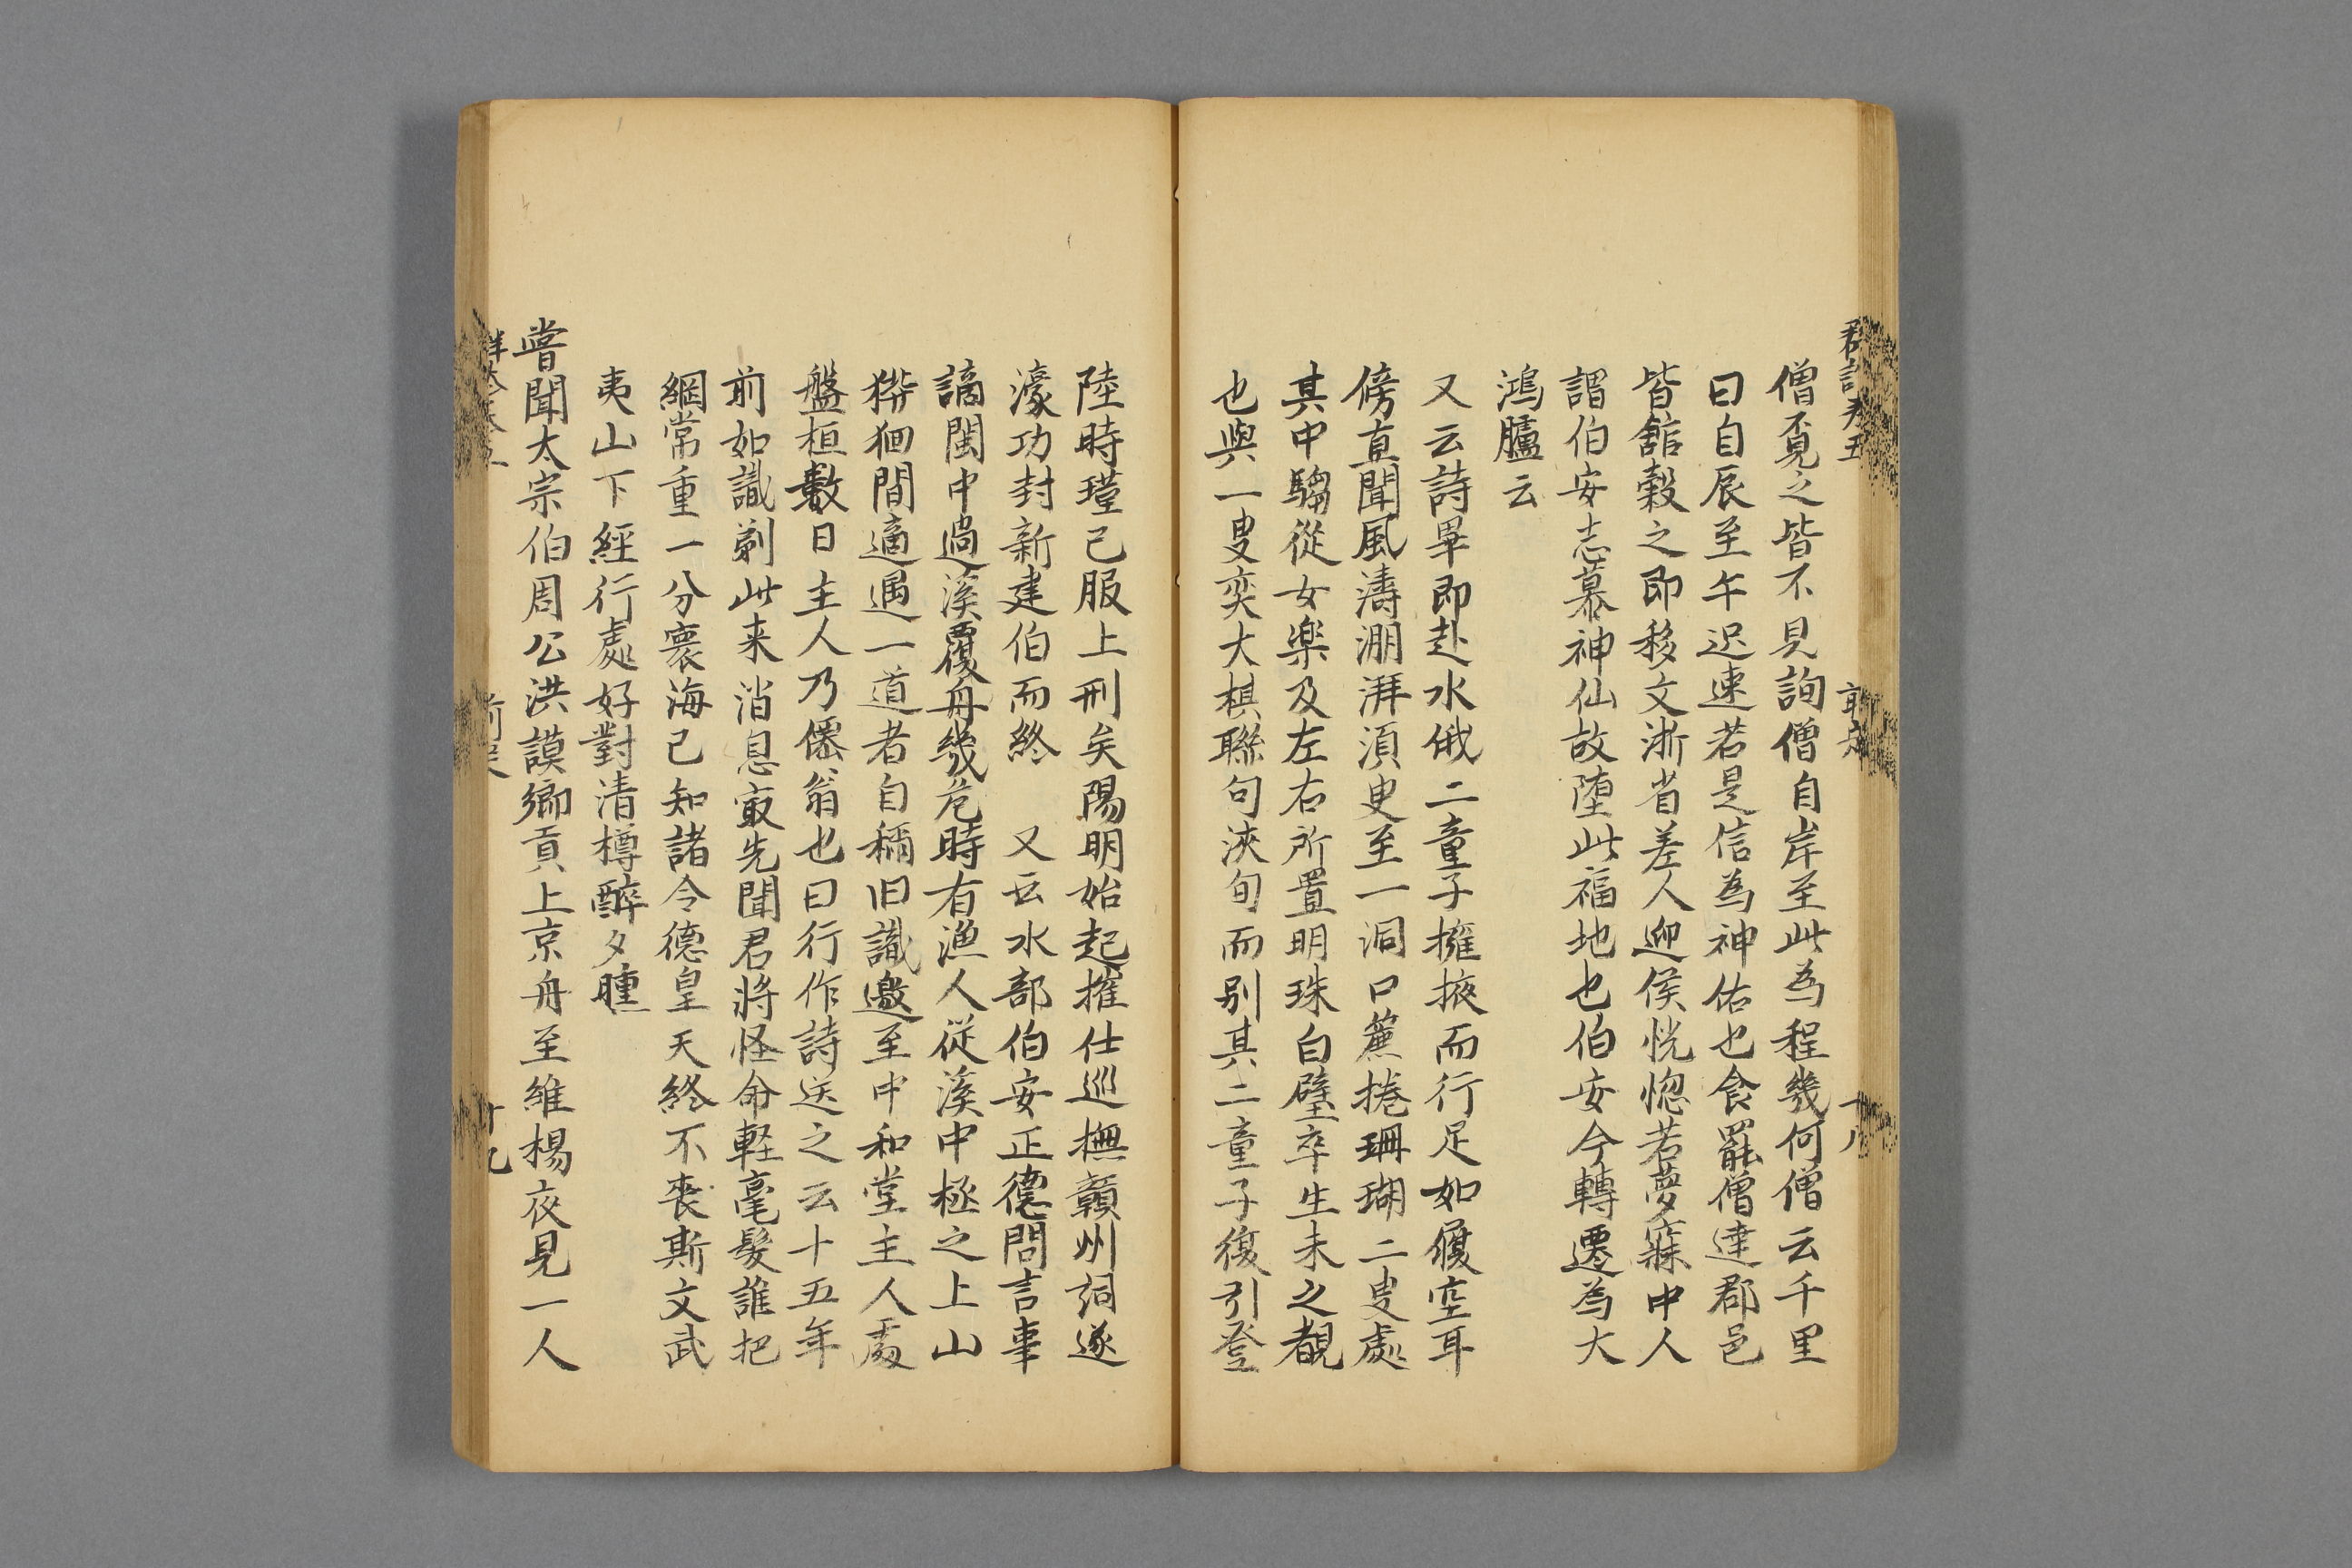 僧覔之皆不見詢僧自岸至此為程幾何僧云千里
曰自辰至午迟速若是信為神佑也食罷僧達郡邑
皆舘穀之即移文浙省差人迎侯恍惚若夢寐中人
謂伯安志慕神仙故堕此福地也伯安今轉遷為大
鴻臚云
又云詩畢即赴水俄二童子擁掖而行足如履空耳
傍直聞風濤淜湃須叟至一洞口簾捲珊瑚二叟處
其中騶從女樂及左右所置明珠白璧卒生未之覩
也與一叟奕大棋聯句浹旬而别其二童子復引登
陸時瑾己服上刑矣陽明始起擢仕巡撫贛州詞遂
濠功封新建伯而終 又云水部伯安正德間言事
謫閩中過溪覆舟幾危時有漁人從溪中極之上山
徘徊間適遇一道者自稱旧識邀至中和堂主人處
盤桓數日主人乃僊翁也曰行作詩送之云十五年
前如識剃此来消息㝡先聞君將怪命軽毫髮誰把
綱常重一分寰海己知諸令德皇天終不喪斯文武
夷山下經行處好對清樽醉夕曛
嘗聞太宗伯周公洪謨鄉貢上京舟至維楊夜見一人
十八
十九